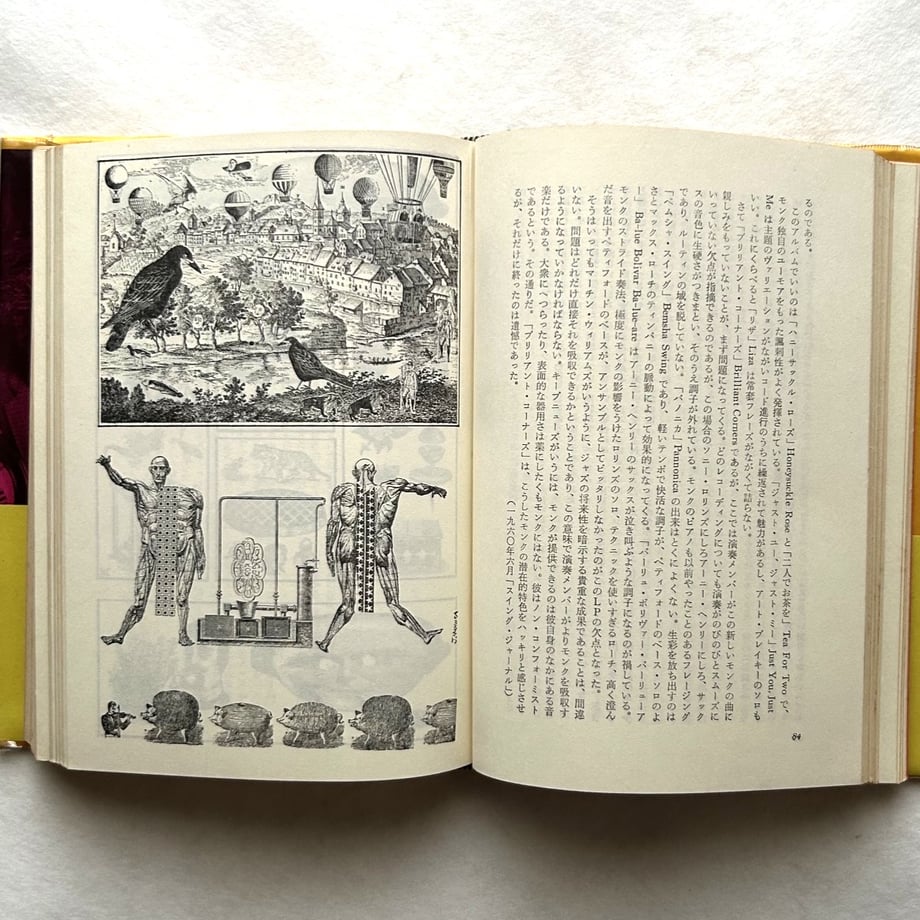 るのである。
このアルバムでいいのは「ハニーサックル・ローズ」Honeysuckle Rose と「二人でお茶を」Tea For Two で、
モンク独自のユーモアをもった諷刺性がよく発揮されている。「ジャスト・ユー、ジャスト・ミー」Just You, Just
Me は主題のヴァリエーションがながいコード進行のうちに繰返されて魅力があるし、アート・ブレイキーのソロも
いい。これにくらべると「リザ」Liza は常套フレーズがながくて詰らない。
さて「ブリリアント・コーナーズ」Brilliant Corners であるが、ここでは演奏メンバーがこの新しいモンクの曲に
親しみをもっていないことが、まず問題になってくる。どのレコーディングについても演奏がのびのびとスムーズに
いっていない欠点が指摘できるのであるが、この場合のソニー・ロリンズにしろアーニー・ヘンリーにしろ、サック
スの音色に生硬さがつきまとい、そのうえ調子が外れている。モンクのピアノも以前やったことのあるフレージング
であり、ルーティンの域を脱していない。「パノニカ」Pannonica の出来はとくによくない。生彩を放ち出すのは
「ベムシャ・スイング」Bemsha Swing であり、軽いテンポで快活な調子が、ペティフォードのベース・ソロのよ
さとマックス・ローチのティンパニーの脈動によって効果的になってくる。「バーリュ・ボリヴァー・バーリューア
ー」Ba-lue Bolivar Ba-lue-are はアーニー・ヘンリーのサックスが泣き叫ぶような調子になるのが禍している。
モンクのストライド奏法、極度にモンクの影響をうけたロリンズのソロ、テクニックを使いすぎるローチ、高く澄ん
だ音を出すペティフォードのベースが、アンサンブルとしてピッタリしなかったのがこのLPの欠点となった。
そうはいってもマーチン・ウィリアムズがいうように、ジャズの将来性を暗示する貴重な成果であることは、間違
いない。問題はどれだけ直接それを吸収できるかということであり、この意味で演奏メンバーがよりモンクを吸収す
るようになっていかなければならない。キープニューズがいうには、モンクが提供できるのは彼自身のなかにある音
楽だけである。大衆にへつらったり、表面的な器用さは薬にしたくもモンクにはない。彼はノン・コンフォーミスト
であるという。その通りだ。「ブリリアント・コーナーズ」は、こうしたモンクの潜在的特色をハッキリと感じさせ
るが、それだけで終ったのは遺憾であった。
（一九六〇年六月「スイング・ジャーナル」）
84